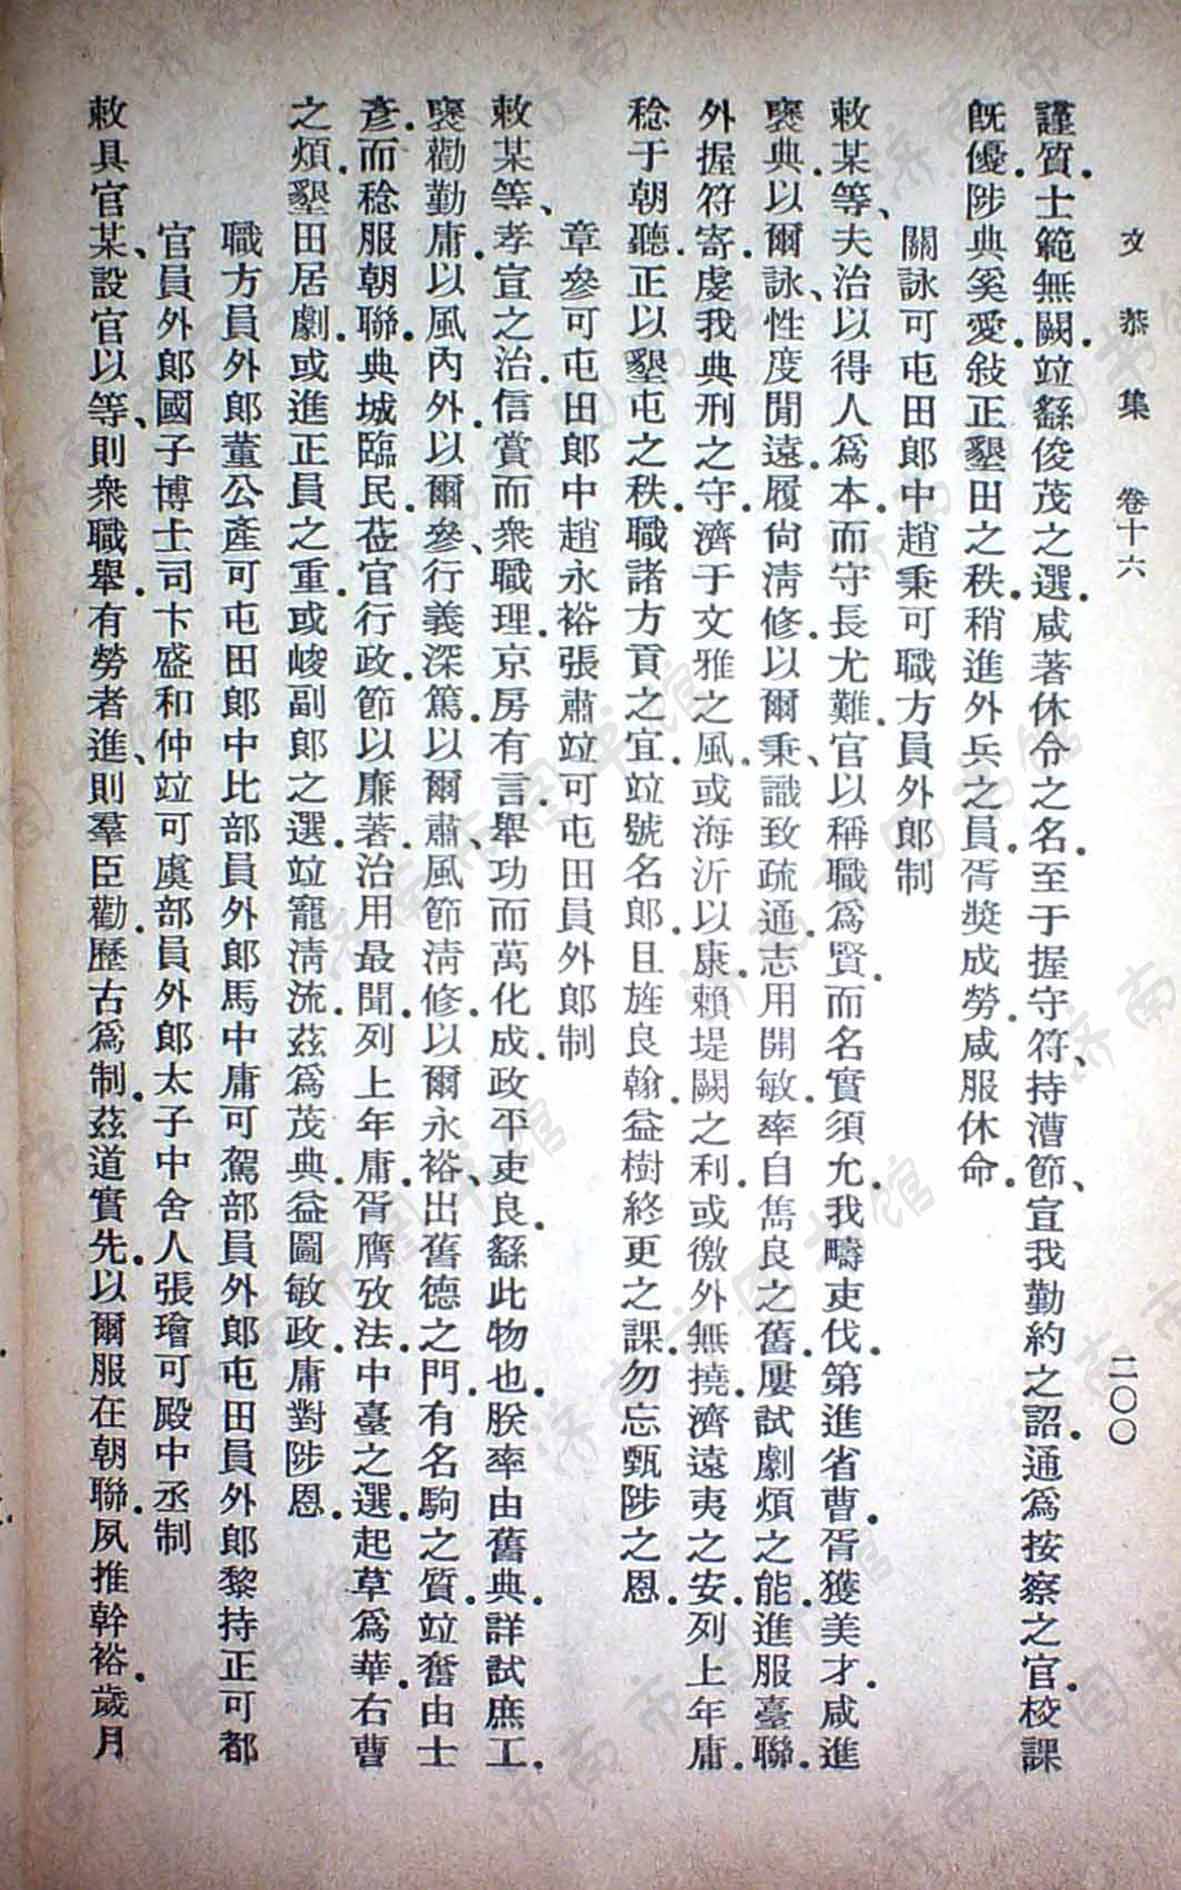 文恭集 卷十六 二〇〇
謹質.士範無闕.竝繇俊茂之選.咸著休令之名.至于握守符、持漕節、宣我勤約之詔.通爲按察之官.校課
旣優.陟典奚愛.敍正墾田之秩.稍進外兵之員.胥獎成勞.咸服休命.
關詠可屯田郎中趙秉可職方員外郎制
敕某等、夫治以得人爲本.而守長尤難.官以稱職爲賢.而名實須允.我疇吏伐.第進省曹.胥獲美才.咸進
襃典.以爾詠、性度閒遠.履尙淸修.以爾秉、識致疏通.志用開敏.率自雋良之舊.屢試劇煩之能.進服臺聯.
外握符寄.虔我典刑之守.濟于文雅之風.或海沂以康.賴堤闕之利.或徼外無撓.濟遠夷之安.列上年庸.
稔于朝聽.正以墾屯之秩.職諸方貢之宜.竝號名郎.且旌良翰.益樹終更之課.勿忘甄陟之恩.
章參可屯田郎中趙永裕張肅竝可屯田員外郎制
敕某等、孝宣之治.信賞而衆職理.京房有言.舉功而萬化成.政平吏良.繇此物也.朕率由舊典.詳試庶工.
襃勸勤庸.以風內外.以爾參、行義深篤.以爾肅、風節淸修.以爾永裕、出舊德之門.有名駒之質.竝奮由士
彥.而稔服朝聯.典城臨民.莅官行政.節以廉著.治用最聞.列上年庸.胥膺攷法.中臺之選.起草爲華.右曹
之煩.墾田居劇.或進正員之重.或峻副郎之選.竝寵淸流.茲爲茂典.益圖敏政.庸對陟恩.
職方員外郎董公產可屯田郎中比部員外郎馬中庸可駕部員外郎屯田員外郎黎持正可都
官員外郎國子博士司卞盛和仲竝可虞部員外郎太子中舍人張璯可殿中丞制
敕具官某、設官以等、則衆職舉.有勞者進、則羣臣勸.歷古爲制.茲道實先.以爾服在朝聯.夙推幹裕.歲月